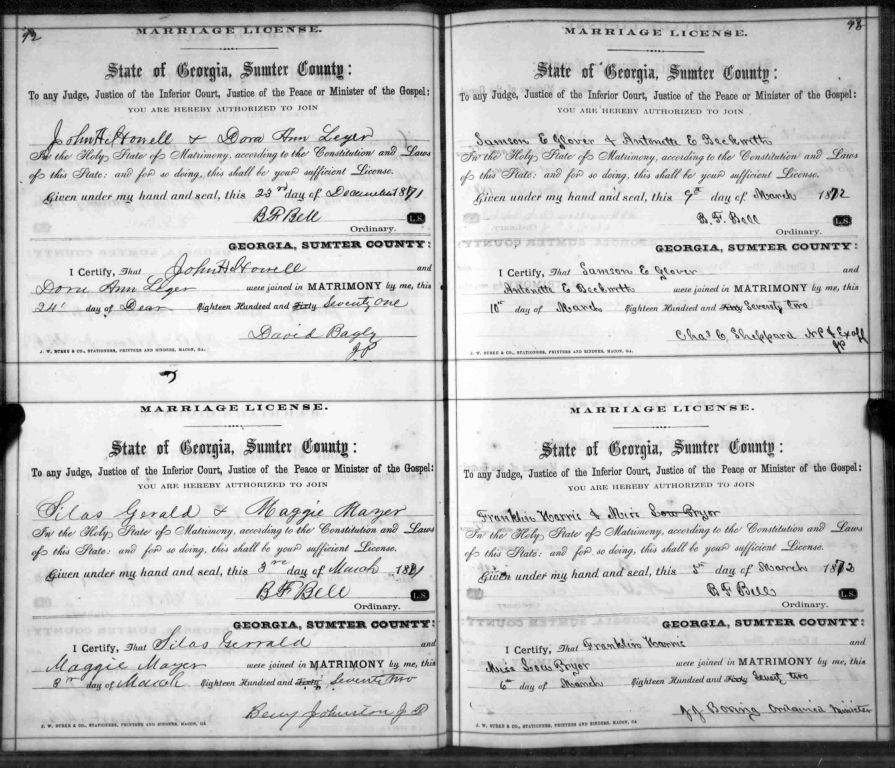 92
MARRIAGE LICENSE.
State of Georgia, Sumter County:
To any Judge, Justice of the Inferior Court, Justice of the Peace or Minister of the Gospel:
YOU ARE HEREBY AUTHORIZED TO JOIN
John H Howell & Dora Ann Leger
In the Holy State of Matrimony, according to the Constitution and Laws
of this State: and for so doing, this shall be your sufficient License.
Given under my hand and seal, this 23rd day of December 1871
B F Bell L.S.
Ordinary.
GEORGIA, SUMTER COUNTY:
I Certify, That John H Howell and
Dora Ann Leger were joined in MATRIMONY by me, this
24 day of Decr Eighteen Hundred and Sixty Seventy One
David Bagly
JP
J. W. BURKE & CO., STATIONERS, PRINTERS AND BINDERS, MACON, GA.
MARRIAGE LICENSE.
State of Georgia, Sumter County:
To any Judge, Justice of the Inferior Court, Justice of the Peace or Minister of the Gospel:
YOU ARE HEREBY AUTHORIZED TO JOIN
Silas Gerald & Maggie Mayer
In the Holy State of Matrimony, according to the Constitution and Laws
of this State: and for so doing, this shall be your sufficient License.
Given under my hand and seal, this 3rd day of March 1871
B F Bell L.S.
Ordinary.
GEORGIA, SUMTER COUNTY:
I Certify, That Silas Gerrald and
Maggie Mayer were joined in MATRIMONY by me, this
3rd day of March Eighteen Hundred and Sixty Seventy two
Berry Johnston J P
J. W. BURKE & CO., STATIONERS, PRINTERS AND BINDERS, MACON, GA
93
MARRIAGE LICENSE.
State of Georgia, Sumter County:
To any Judge, Justice of the Inferior Court, Justice of the Peace or Minister of the Gospel:
YOU ARE HEREBY AUTHORIZED TO JOIN
Samson E Glover & Antonette E Beckwith
In the Holy State of Matrimony, according to the Constitution and Laws
of this State: and for so doing, this shall be your sufficient License.
Given under my hand and seal, this 9th day of March 1872
B. F. Bell L.S.
Ordinary.
GEORGIA, SUMTER COUNTY:
I Certify, That Samson E Glover and
Antonette E Beckwith were joined in MATRIMONY by me, this
10th day of March Eighteen Hundred and Sixty Seventy two
Chas C. Sheppard NP & Ex off
JP
J. W. BURKE & CO., STATIONERS, PRINTERS AND BINDERS, MACON, GA.
MARRIAGE LICENSE.
State of Georgia, Sumter County:
To any Judge, Justice of the Inferior Court, Justice of the Peace or Minister of the Gospel:
YOU ARE HEREBY AUTHORIZED TO JOIN
Franklin Harris & Miss Lou Pryor
In the Holy State of Matrimony, according to the Constitution and Laws
of this State: and for so doing, this shall be your sufficient License.
Given under my hand and seal, this 5th day of March 1872
B F Bell L.S.
Ordinary.
GEORGIA, SUMTER COUNTY:
I Certify, That Franklin Harris and
Miss Lou Pryor were joined in MATRIMONY by me, this
6th day of March Eighteen Hundred and Sixty Seventy two
J J Boring Ordained Minister
J. W. BURKE & CO., STATIONERS, PRINTERS AND BINDERS, MACON, GA.